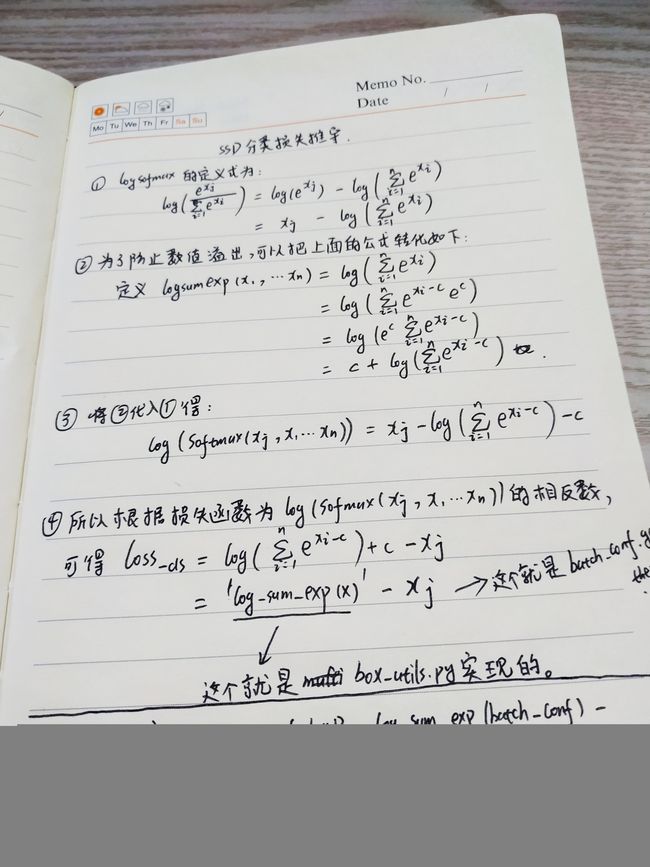 Memo No.
Date / /
Mo Tu We Th Fr Sa Su
SSD分类损失推导.
① logsofmax 的定义式为:
log(e^{xj} / Σ_{i=1}^{n} e^{xi}) = log(e^{xj}) - log(Σ_{i=1}^{n} e^{xi})
= xj - log(Σ_{i=1}^{n} e^{xi})
② 为了防止数值溢出,可以把上面的公式转化如下:
定义 logsumexp(x1, ⋯ xn) = log(Σ_{i=1}^{n} e^{xi})
= log(Σ_{i=1}^{n} e^{xi-c} e^c)
= log(e^c Σ_{i=1}^{n} e^{xi-c})
= c + log(Σ_{i=1}^{n} e^{xi-c}) .
③ 将②代入①得:
log(Softmax(xj, x1 ⋯ xn)) = xj - log(Σ_{i=1}^{n} e^{xi-c}) - c
④ 所以根据损失函数为 log(Sofmax(xj, x1 ⋯ xn)) 的相反数,
可得 Loss_cls = log(Σ_{i=1}^{n} e^{xi-c}) + c - xj
= 'log_sum_exp(x)' - xj → 这个就是 batch_conf.g
the
这个就是 box_utils.py 实现的。
log_sum_exp(batch_conf) -